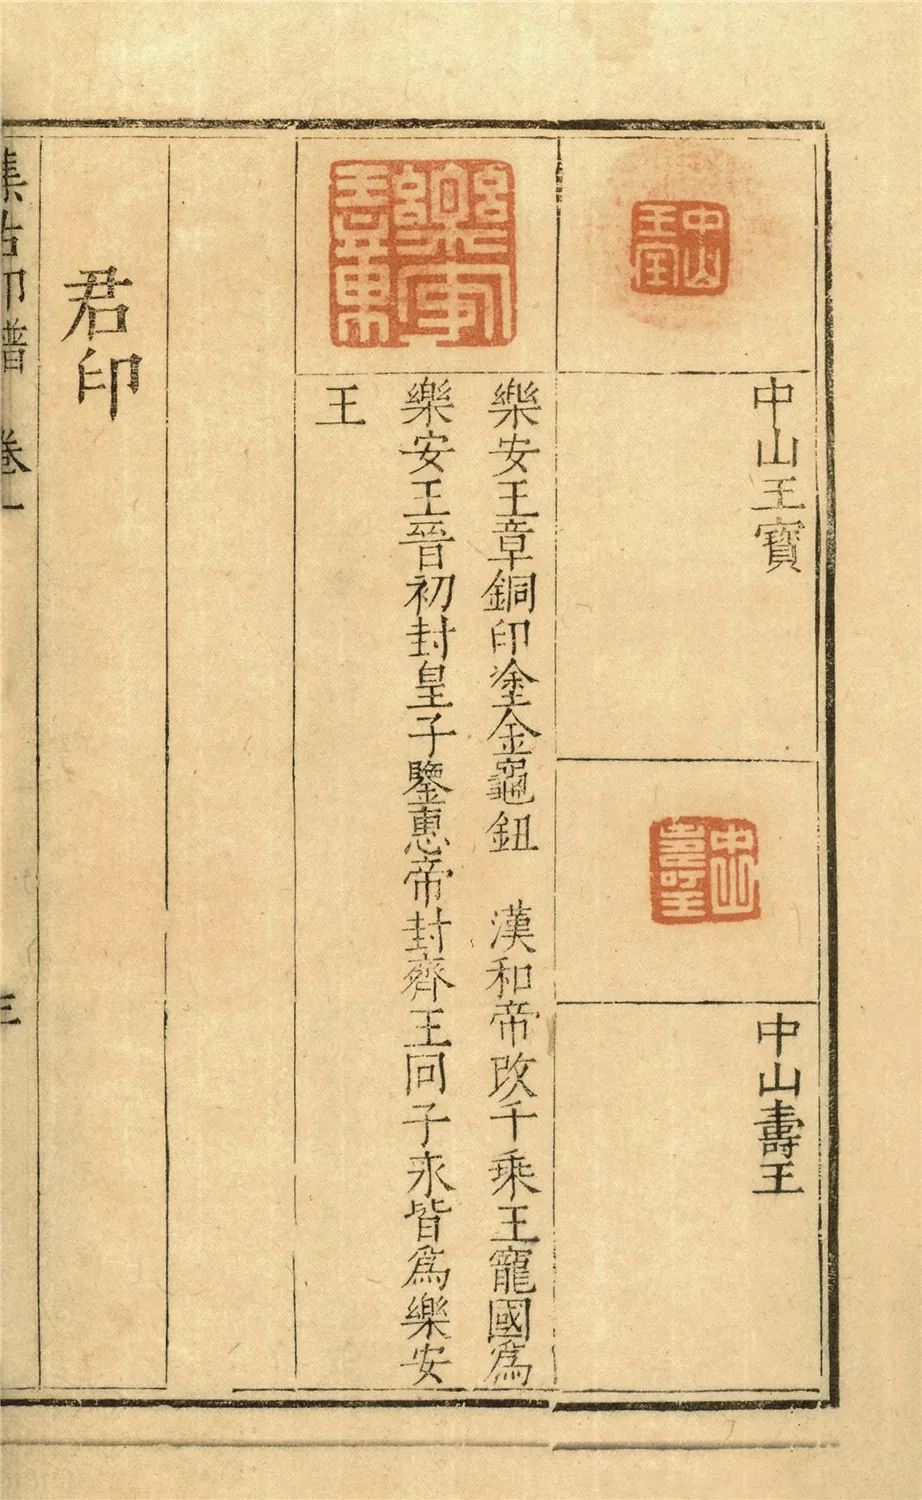 中山王寶
中山壽王
中山壽王
樂安王章銅印塗金龜鈕　漢和帝改千乘王寵國爲
樂安王晉初封皇子鑒惠帝封齊王冏子氷皆爲樂安
王
君印
集古印譜　卷一　三